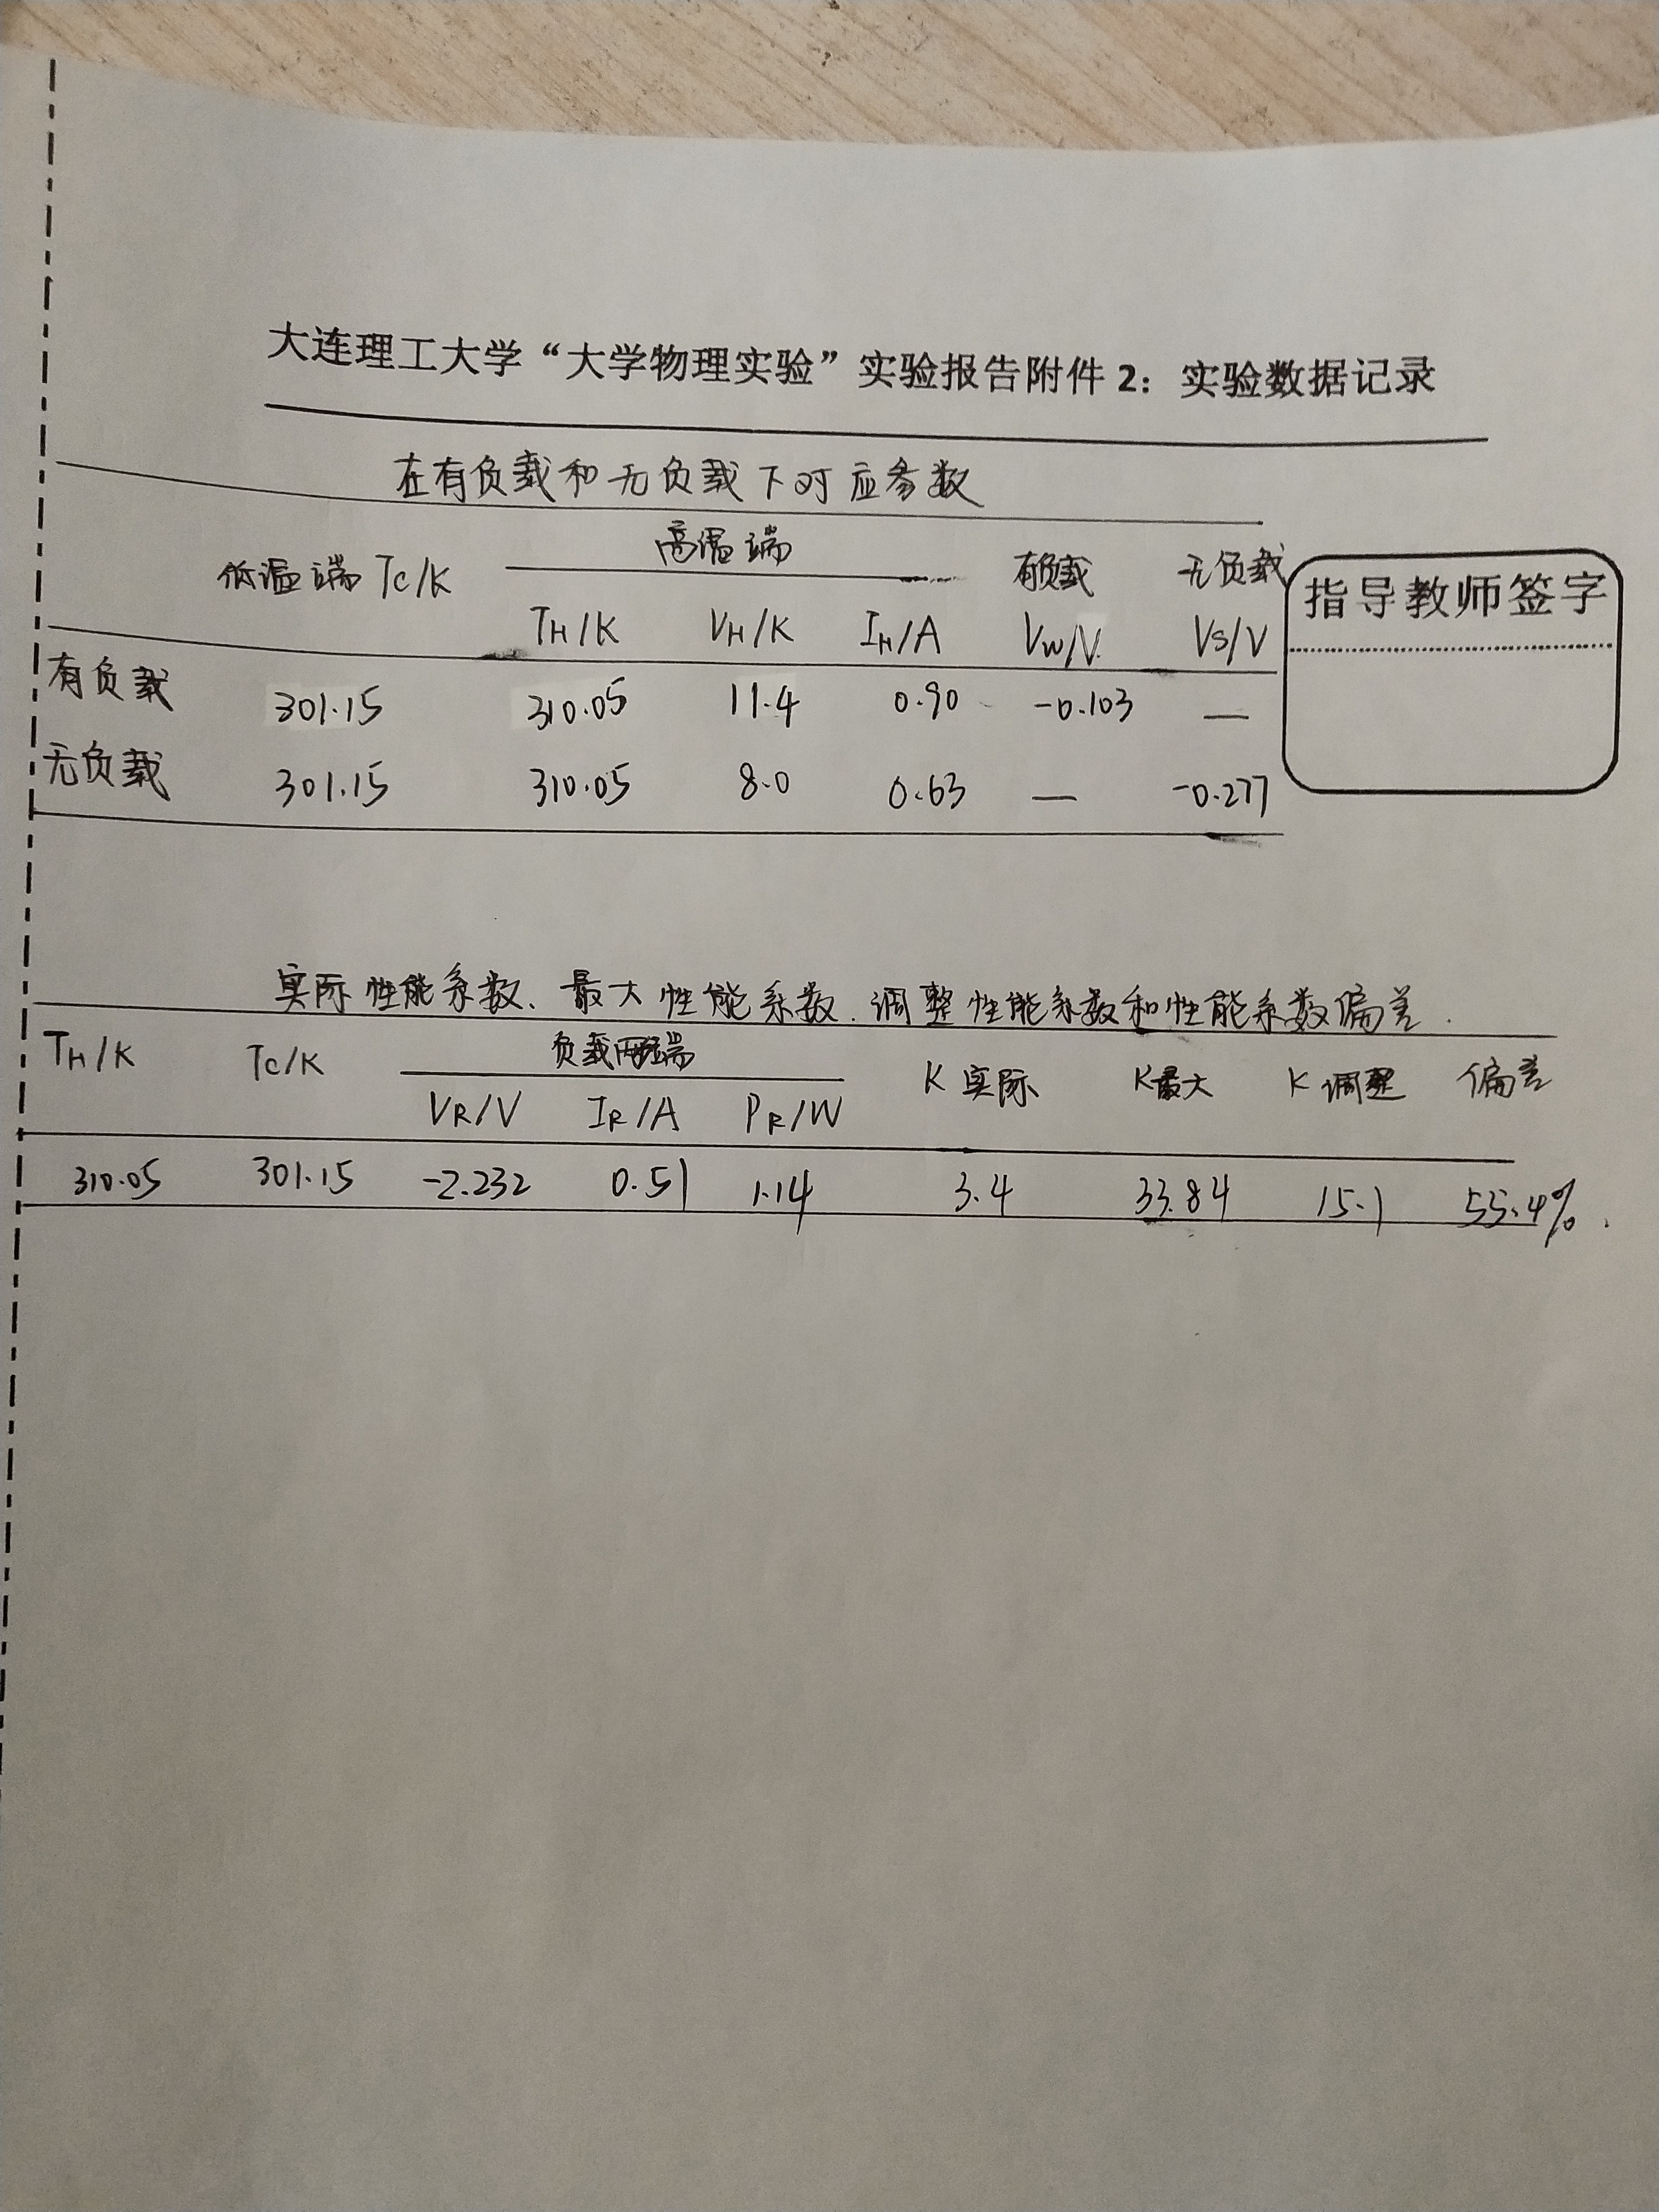 大连理工大学“大学物理实验”实验报告附件2：实验数据记录
在有负载和无负载下对应参数
低温端 Tc/K 高温端 有负载 无负载
TH/K VH/K IH/A Vw/V Vs/V
指导教师签字
有负载 301.15 310.05 11.4 0.90 -0.103 —
无负载 301.15 310.05 8.0 0.63 — -0.277
实际性能系数、最大性能系数、调整性能系数和性能系数偏差.
TH/K Tc/K 负载两端 K实际 K最大 K调整 偏差
VR/V IR/A PR/W
310.05 301.15 -2.232 0.51 1.14 3.4 33.84 15.1 55.4%.